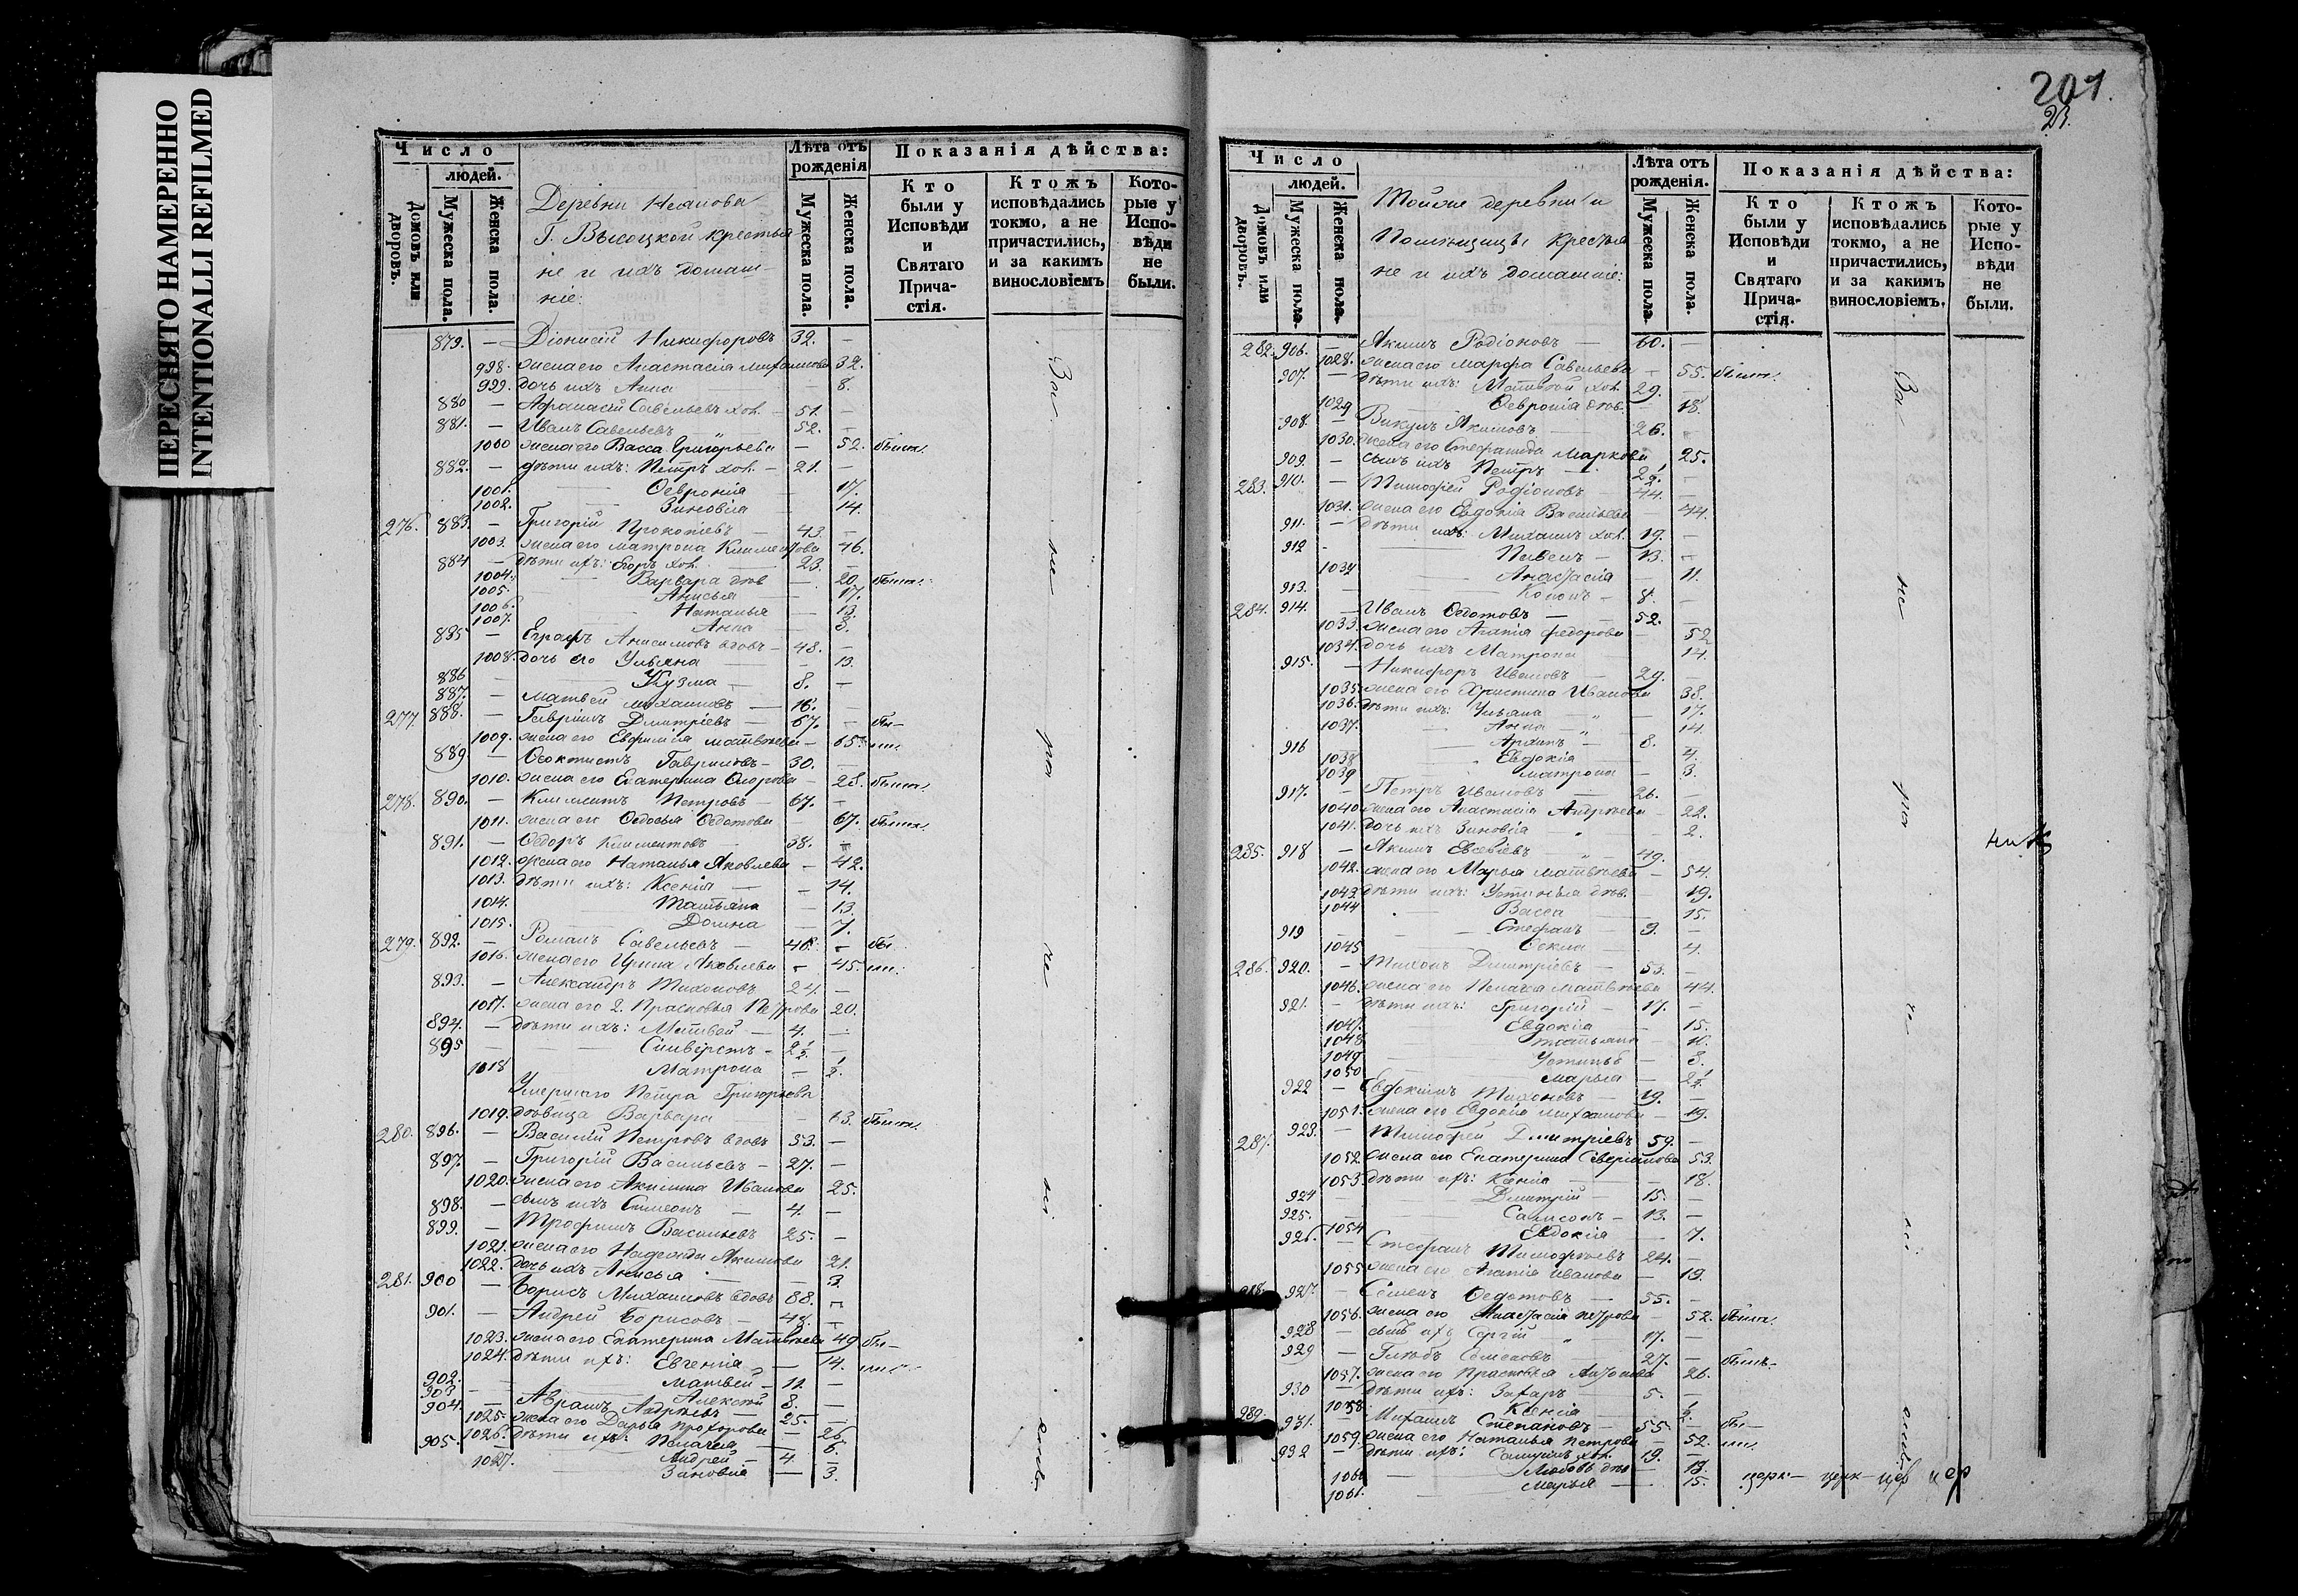 ПЕРЕСНЯТО НАМЕРЕННО
INTENTIONALLI REFILMED
Число
людей.
Домовъ или дворовъ.
Мужеска пола.
Женска пола.
Деревни
Г. Высоцкой крестья
не и ихъ домаш-
ніе:
Лѣта отъ рожденія
Мужеска пола.
Женска пола.
Показанія дѣйства:
Кто были у Исповѣди и Святаго Прича-стія.
Ктожъ исповѣдались токмо, а не причастились, и за какимъ винословіемъ
Кото-рые у Испо-вѣди не были.
879. — Діонисій Никифоровъ 32. —
998. жена его Анастасія Михаилова 32.
999. дочь ихъ Анна — 8.
880 — Афанасій Савельевъ хол. — 51. —
881. — Иванъ Савельевъ 52. —
1000 жена его Васса Григорьева — 52. были.
882. — дѣти ихъ: Петръ хол. — 21. —
1001. Ѳевронія 17.
1002. Зиновія 14.
276. 883. — Григорій Прокопіевъ — 43. —
1003. жена его Матрона Климентова 46.
884 — дѣти ихъ: Егоръ хол. 23. —
1004. Варвара дѣв — 20. были.
1005. Анисья — 17.
1006. Наталья — 13.
1007. Анна 8.
885 — Анисимовъ вдовъ — 48. —
1008. дочь его Ульяна — 13.
886 — Кузма — 8. —
887. — Матвей Михаиловъ — 16. —
277. 888. — Гавріилъ Дмитріевъ — 67. — бы—
1009. жена его Евфимія Матвѣева — 65. ли.
889 — Ѳеоктистъ Гавриловъ — 30. —
1010. жена его Екатерина — 28. были.
278. 890. — Климентъ Петровъ — 67. —
1011. жена его Ѳедосья Ѳедотова 67. были.
891. — Ѳедоръ Климентовъ 38. —
1012. жена его Наталья Яковлева — 42.
1013. дѣти ихъ: Ксенія — — 14.
1014. Татьяна — 13.
1015. Домна — 7.
279. 892. — Романъ Савельевъ — 48. — бы
1016. жена его Ирина Яковлева — 45. ли.
893. — Александръ Тихоновъ 24. —
1017. жена его 2. Прасковья Петрова 20.
894. — дѣти ихъ: Матвей — 4. —
895 Сильверстъ — 2½ —
1018 Матрона — ½.
Умершаго Петра Григорьева
1019. дѣвица Варвара были.
280. 896. — Василій Петровъ вдовъ 53. —
897. — Григорій Васильевъ — 27. —
1020. жена его Акилина Иванова 25.
898. — сынъ ихъ Симеонъ — 4. —
899. — Трофимъ Васильевъ 25. —
1021. жена его Надежда Акимова 21.
1022. дочь ихъ Анисья — 2.
281. 900 — Борисъ Михаиловъ вдовъ 88. —
901. — Андрей Борисовъ — 48. —
1023. жена его Екатерина Матвѣева 49 бы—
1024. дѣти ихъ: Евгенія — 14. ли
902. — Матвей — 11. —
903 — Алексѣй 8. —
904. — Авраамъ Андреевъ — 25. —
1025. жена его Дарья Прохорова — 26.
1026. дѣти ихъ: Пелагея 6.
905. — Андрей — 4. —
1027. Зиновія — 3.
201.
23.
Число
людей.
Домовъ или дворовъ.
Мужеска пола.
Женска пола.
Тойже деревни и
Помѣщицы крестья
не и ихъ домашніе:
Лѣта отъ рожденія.
Мужеска пола.
Женска пола.
Показанія дѣйства:
Кто были у Исповѣди и Святаго Прича-стія.
Ктожъ исповѣдались токмо, а не причастились, и за какимъ винословіемъ.
Кото-рые у Испо-вѣди не были.
282. 906. — Акимъ Родіоновъ — 60. —
1028. жена его Марфа Савельева — 55. были.
907. — дѣти ихъ: Матвей хол. 29. —
1029 Ѳевронія дѣв. — 18.
908. — Викулъ Акимовъ — 26. —
1030. жена его Стефанида Маркова 25.
909. — сынъ ихъ Петръ — 2½. —
283. 910. — Тимофей Родіоновъ — 44. —
1031. жена его Евдокія Васильева — 44.
911. — дѣти ихъ: Михаилъ хол. 19. —
912 Павелъ — 13. —
1032 Анастасія 11.
913. Кононъ — 8. —
284. 914. — Иванъ Ѳедотовъ — 52. —
1033. жена его Агапія Федорова — 52
1034. дочь ихъ Матрона 14.
915. — Никифоръ Ивановъ — 29. —
1035. жена его Христина Иванова 38.
1036. дѣти ихъ: Ульяна — 17.
1037. Анна — 14.
916 Архипъ — 8.
1038 Евдокія — 4.
1039 Матрона — 3.
917. — Петръ Ивановъ — 26. —
1040. жена его Анастасія Андрѣева — 22.
1041. дочь ихъ Зиновія — 2.
285. 918 — Акимъ Евсевіевъ 49. —
1042. жена его Марья Матвѣева — 54.
1043 дѣти ихъ: Устинья дѣв. — 19.
1044 Васса 15.
919 Стефанъ — 9. —
1045 Ѳекла — 4.
286. 920. — Тихонъ Дмитріевъ — 53. —
1046. жена его Пелагея Матвѣева 44.
921. — дѣти ихъ: Григорій — 17. —
1047. Евдокія — 15.
1048 Татьяна — 10.
1049 Устинья — 8.
1050 Марья — 2½.
922 — Евдокимъ Тихоновъ — 19. —
1051. жена его Евдокія Михаилова — 19.
287. 923. — Тимофей Дмитріевъ 59. —
1052 жена его Екатерина 53.
1053. дѣти ихъ: Ксенія — 18.
924 Дмитрій — 15. —
925. Самсонъ — 13. —
1054 Евдокія 7.
926. — Стефанъ Тимофѣевъ 24. —
1055 жена его Агапія Иванова — 19.
288. 927. — Семенъ Ѳедотовъ — 55. —
1056. жена его Анастасія Петрова — 52. были.
928 — сынъ ихъ Сергій — 17. —
929 — Глѣбъ Семеновъ — 27. — былъ.
1057. жена его Прасковья 26.
930 — дѣти ихъ: Захаръ — 5. —
1058 Ксенія ½.
289. 931. — Михаилъ Степановъ — 55. — бы—
1059. жена его Наталья Петрова 52. ли.
932 — дѣти ихъ: Самуилъ хол. 19. —
1060 Любовь дѣв — 18
1061. Марья — 15.